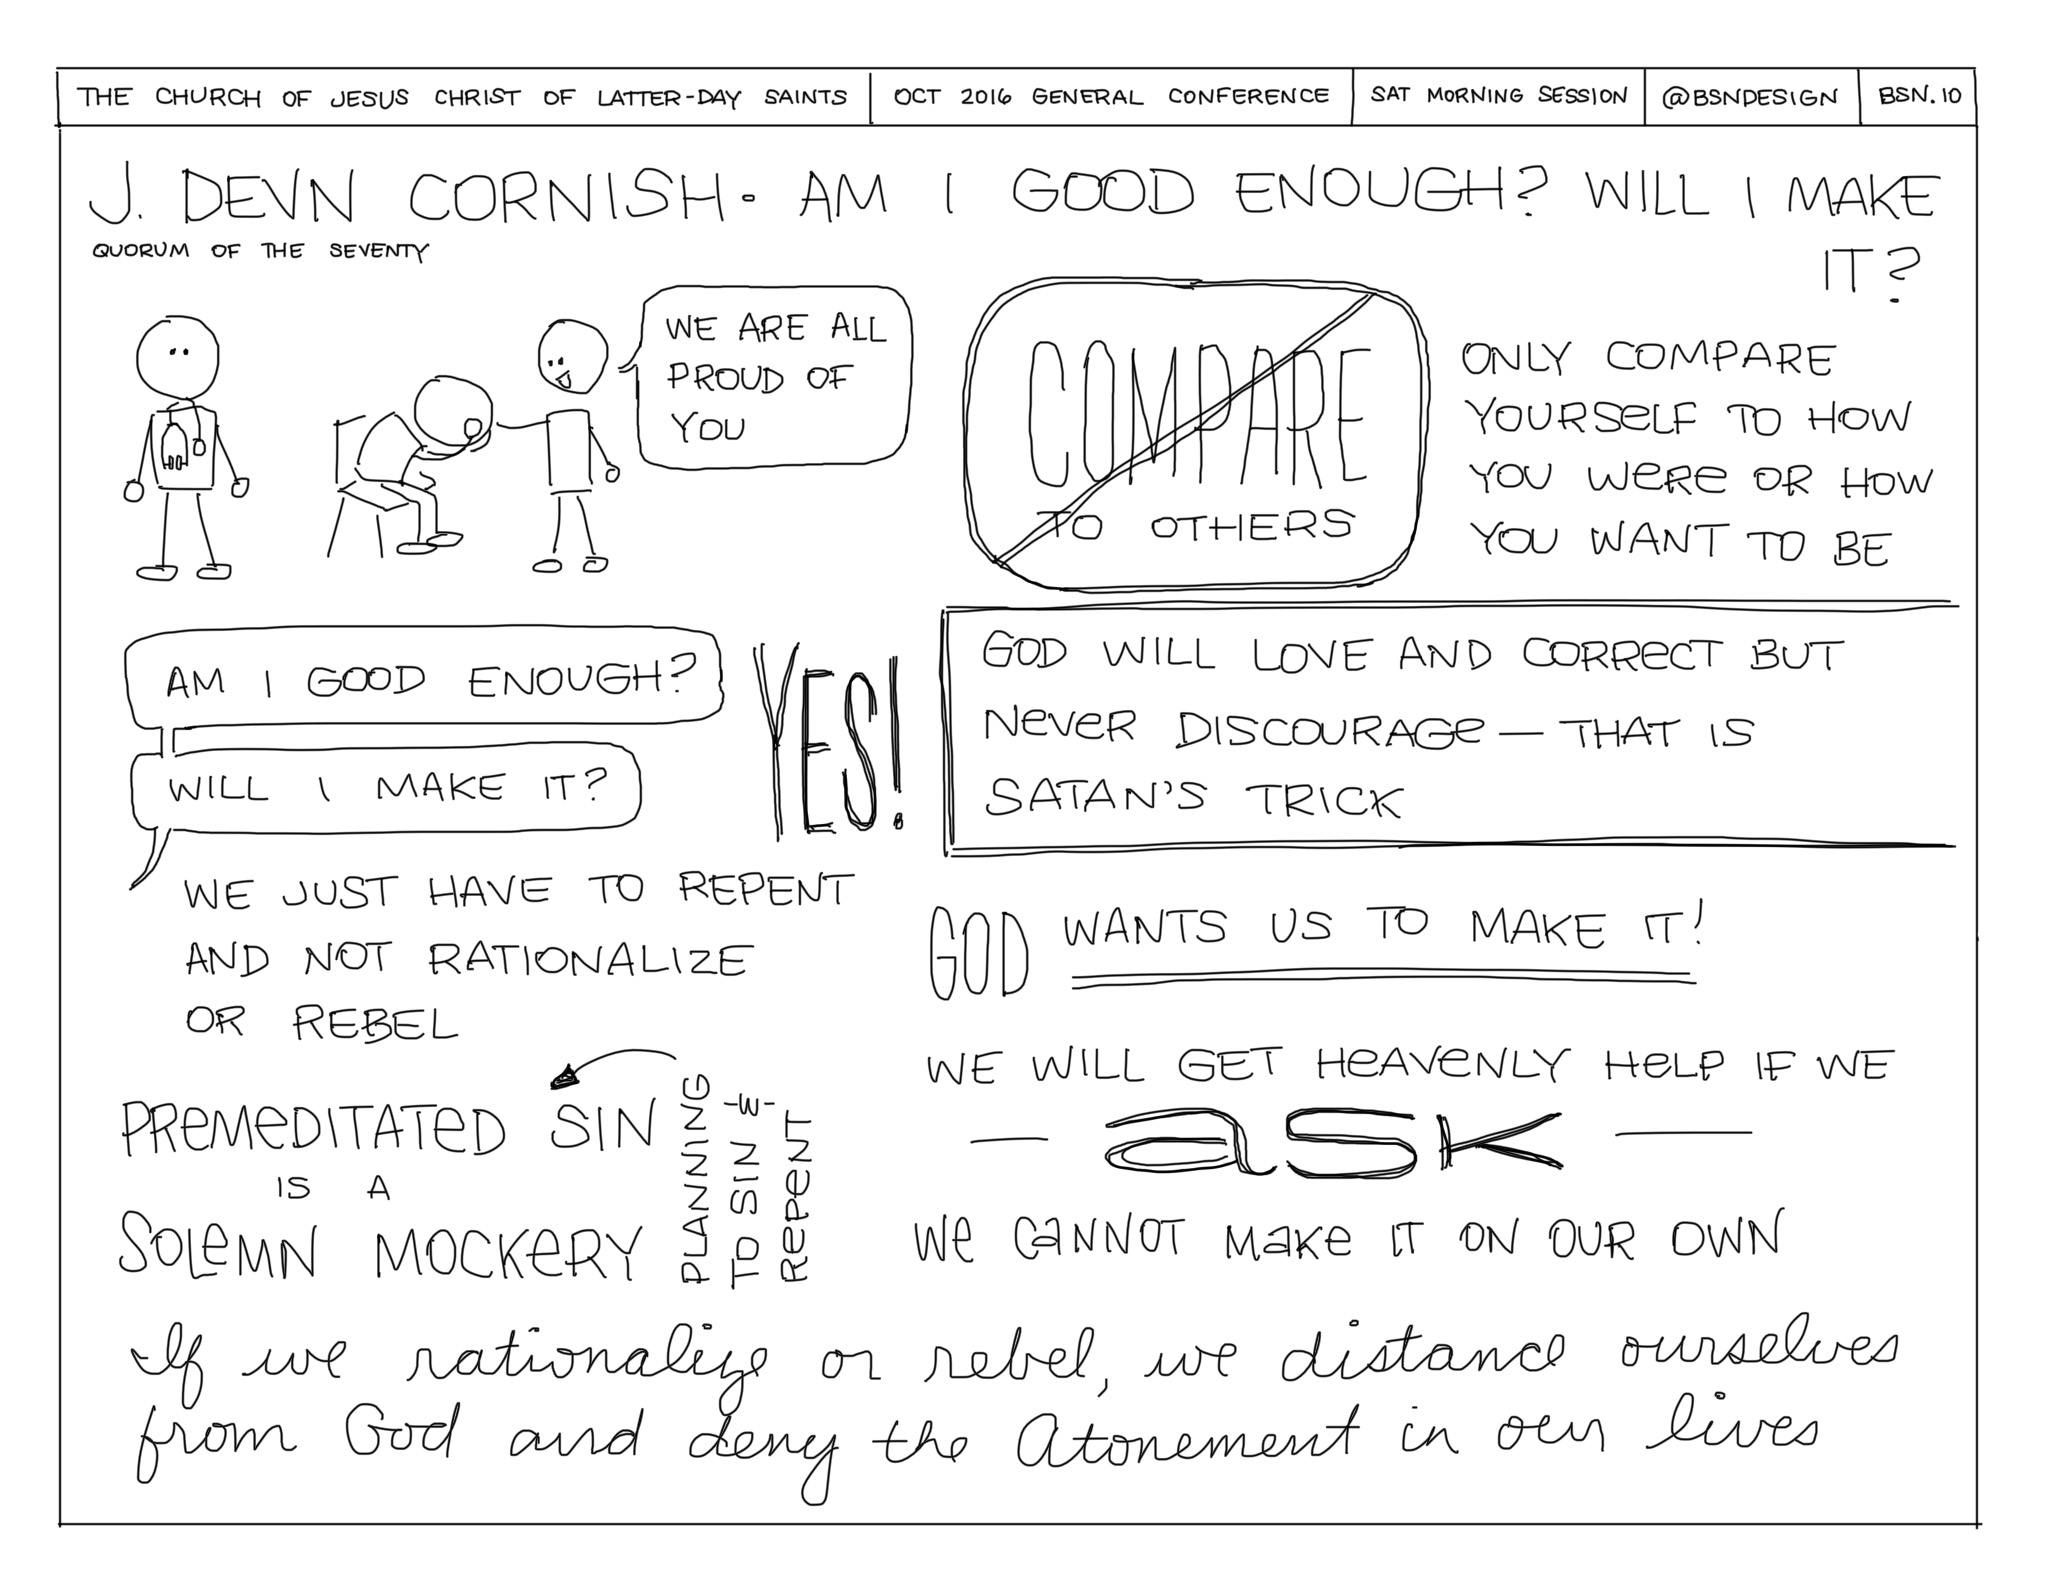 THE CHURCH OF JESUS CHRIST OF LATTER-DAY SAINTS
OCT 2016 GENERAL CONFERENCE
SAT MORNING SESSION
@BSNDESIGN
BSN.10
J. DEVN CORNISH · AM I GOOD ENOUGH? WILL I MAKE
IT?
QUORUM OF THE SEVENTY
WE ARE ALL
PROUD OF
YOU
COMPARE
TO OTHERS
ONLY COMPARE
YOURSELF TO HOW
YOU WERE OR HOW
YOU WANT TO BE
AM I GOOD ENOUGH?
WILL I MAKE IT?
YES!
GOD WILL LOVE AND CORRECT BUT
NEVER DISCOURAGE — THAT IS
SATAN'S TRICK
WE JUST HAVE TO REPENT
AND NOT RATIONALIZE
OR REBEL
GOD WANTS US TO MAKE IT!
PREMEDITATED SIN
IS A
SOLEMN MOCKERY
PLANNING
TO SIN -E-
REPENT
WE WILL GET HEAVENLY HELP IF WE
— ask —
WE CANNOT MAKE IT ON OUR OWN
If we rationalize or rebel, we distance ourselves
from God and deny the Atonement in our lives